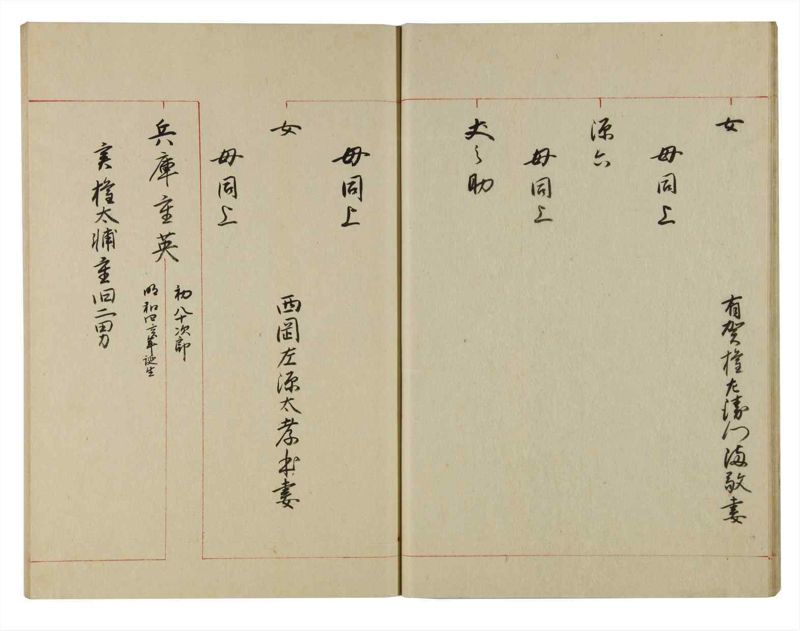 女
有賀権左衛門満敬妻
母同上
源六
母同上
丈之助
母同上
女
西岡左源太孝忠妻
母同上
兵庫重英
初八十次郎
明和四亥年誕生
実権太輔重旧二男